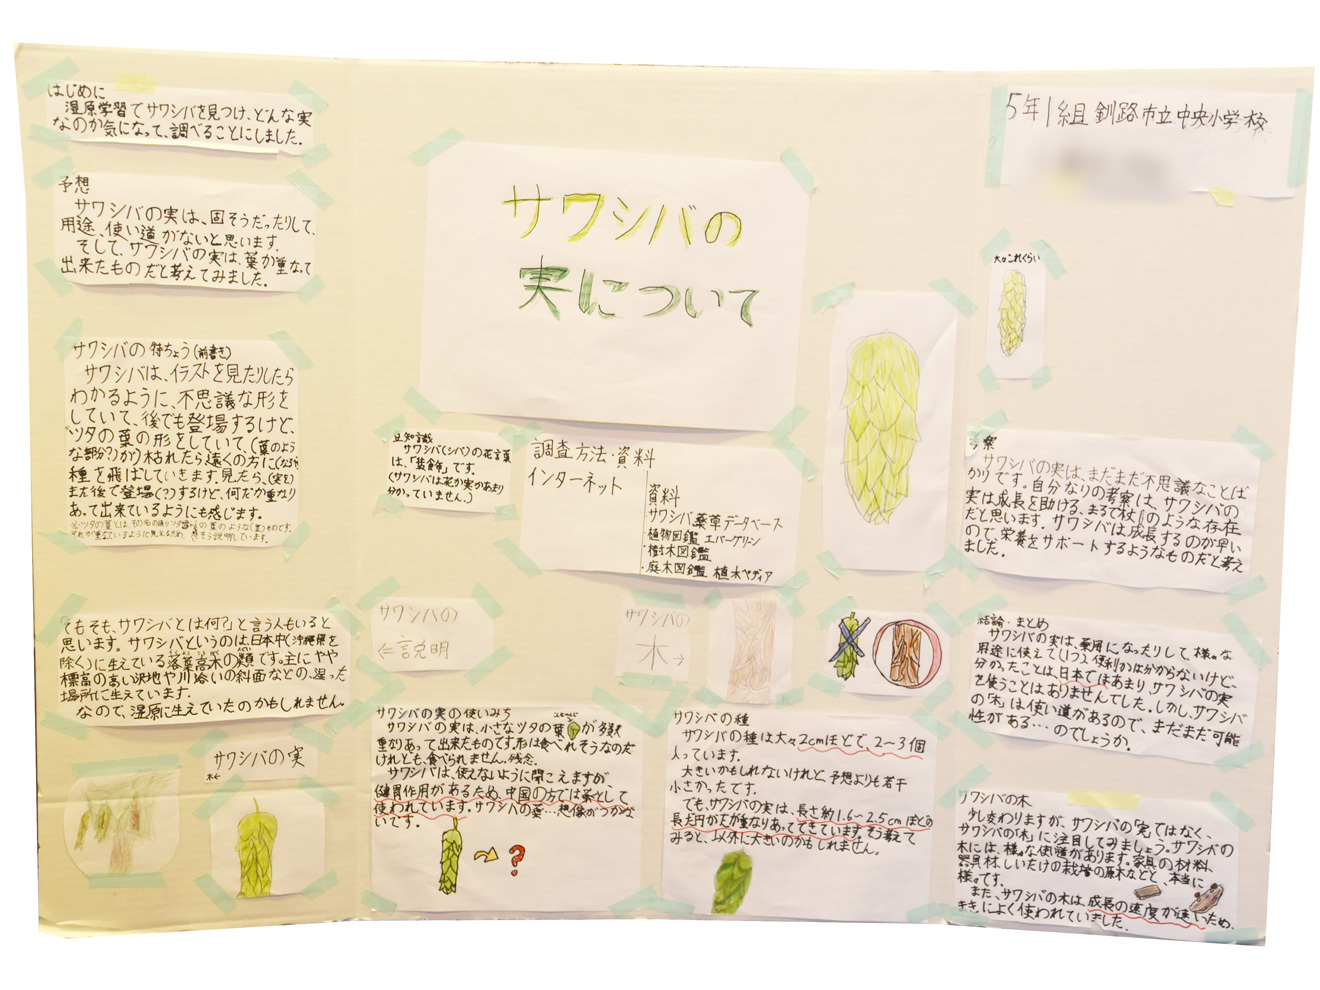 はじめに
湿原学習でサワシバを見つけ、どんな実
なのか気になって、調べることにしました。
予想
サワシバの実は、固そうだったりして、
用途、使い道がないと思います。
そして、サワシバの実は、葉が重なって
出来たものだと考えてみました。
サワシバの特ちょう(前書き)
サワシバは、イラストを見たりしたら
わかるように、不思議な形を
していて、後でも登場するけど、
ツタの葉の形をしていて、(葉のよう
な部分?)が枯れたら遠くの方に(なるべく)
種を飛ばしていきます。見たら、(実を)
また後で登場(?)するけど、何だか重なり
あって出来ているようにも感じます。
そもそも、サワシバとは何?」と言う人もいると
思います。サワシバというのは日本中(沖縄県を
除く)に生えている落葉高木の類です。主にやや
標高の高い沢地や川沿いの斜面などの、湿った
場所に生えています。
なので、湿原に生えていたのかもしれません。
サワシバの実
木←
サワシバの
実について
豆知識
サワシバ(シバ)の花言葉
は、「装飾」です。
(サワシバは花か実かあまり
分かっていません。)
調査方法・資料
インターネット
資料
サワシバ薬草データベース
・植物図鑑 エバーグリーン
・樹木図鑑
・庭木図鑑 植木ペディア
サワシバの
⇐説明
サワシバの
木→
サワシバの実の使いみち
サワシバの実は、小さなツタの葉が多数
重なりあって出来たものです。形は食べれそうなのだ
けれども、食べられません。残念。
サワシバは、使えないように聞こえますが
健胃作用があるため、中国の方では薬として
使われています。サワシバの薬…想像がつかな
いです。
?
サワシバの種
サワシバの種は大々2cmほどで、2〜3個
入っています。
大きいかもしれないけれど、予想よりも若干
小さかったです。
でも、サワシバの実は、長さ約1.6〜2.5cmほどの
長だ円がたが重なりあってできています。そう考えて
みると、以外に大きいのかもしれません。
5年1組 釧路市立中央小学校
大々これくらい
考察
サワシバの実は、まだまだ不思議なことば
かりです。自分なりの考察は、サワシバの
実は成長を助ける、まるで杖のような存在
だと思います。サワシバは成長するのが早い
ので、栄養をサポートするようなものだと考え
ました。
結論・まとめ
サワシバの実は、薬用になったりして、様々な
用途に使えて(?)便利かは分からないけど、
分かったことは、日本ではあまり、サワシバの実
を使うことはありませんでした。しかし、サワシバ
の「木」は使い道があるので、まだまだ可能
性がある…のでしょうか。
サワシバの木
少し変わりますが、サワシバの「実」ではなく、
サワシバの「木」に注目してみましょう。サワシバの
木には、様々な使道があります。家具の材料、
器具材、しいたけの栽培の原木などと、本当に
様々です。
また、サワシバの木は、成長の速度が速いため、
まきによく使われていました。